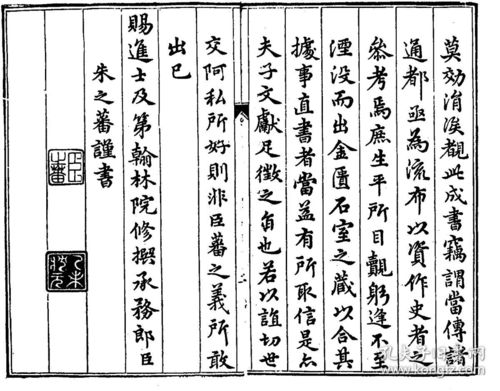 莫効涓涘觀此成書竊謂當傳諸
通都亟為流布以資作史者之
參考焉庶生平所目覿躬逢不至
湮没而出金匱石室之蔵以合其
據事直書者當益有所取信是亦
夫子文獻足徵之旨也若以誼切世
二
交阿私所好則非臣蕃之義所敢
出已
賜進士及第翰林院修撰承務郎臣
朱之蕃謹書
乙未狀元
孔夫子旧书网
kongfz.com